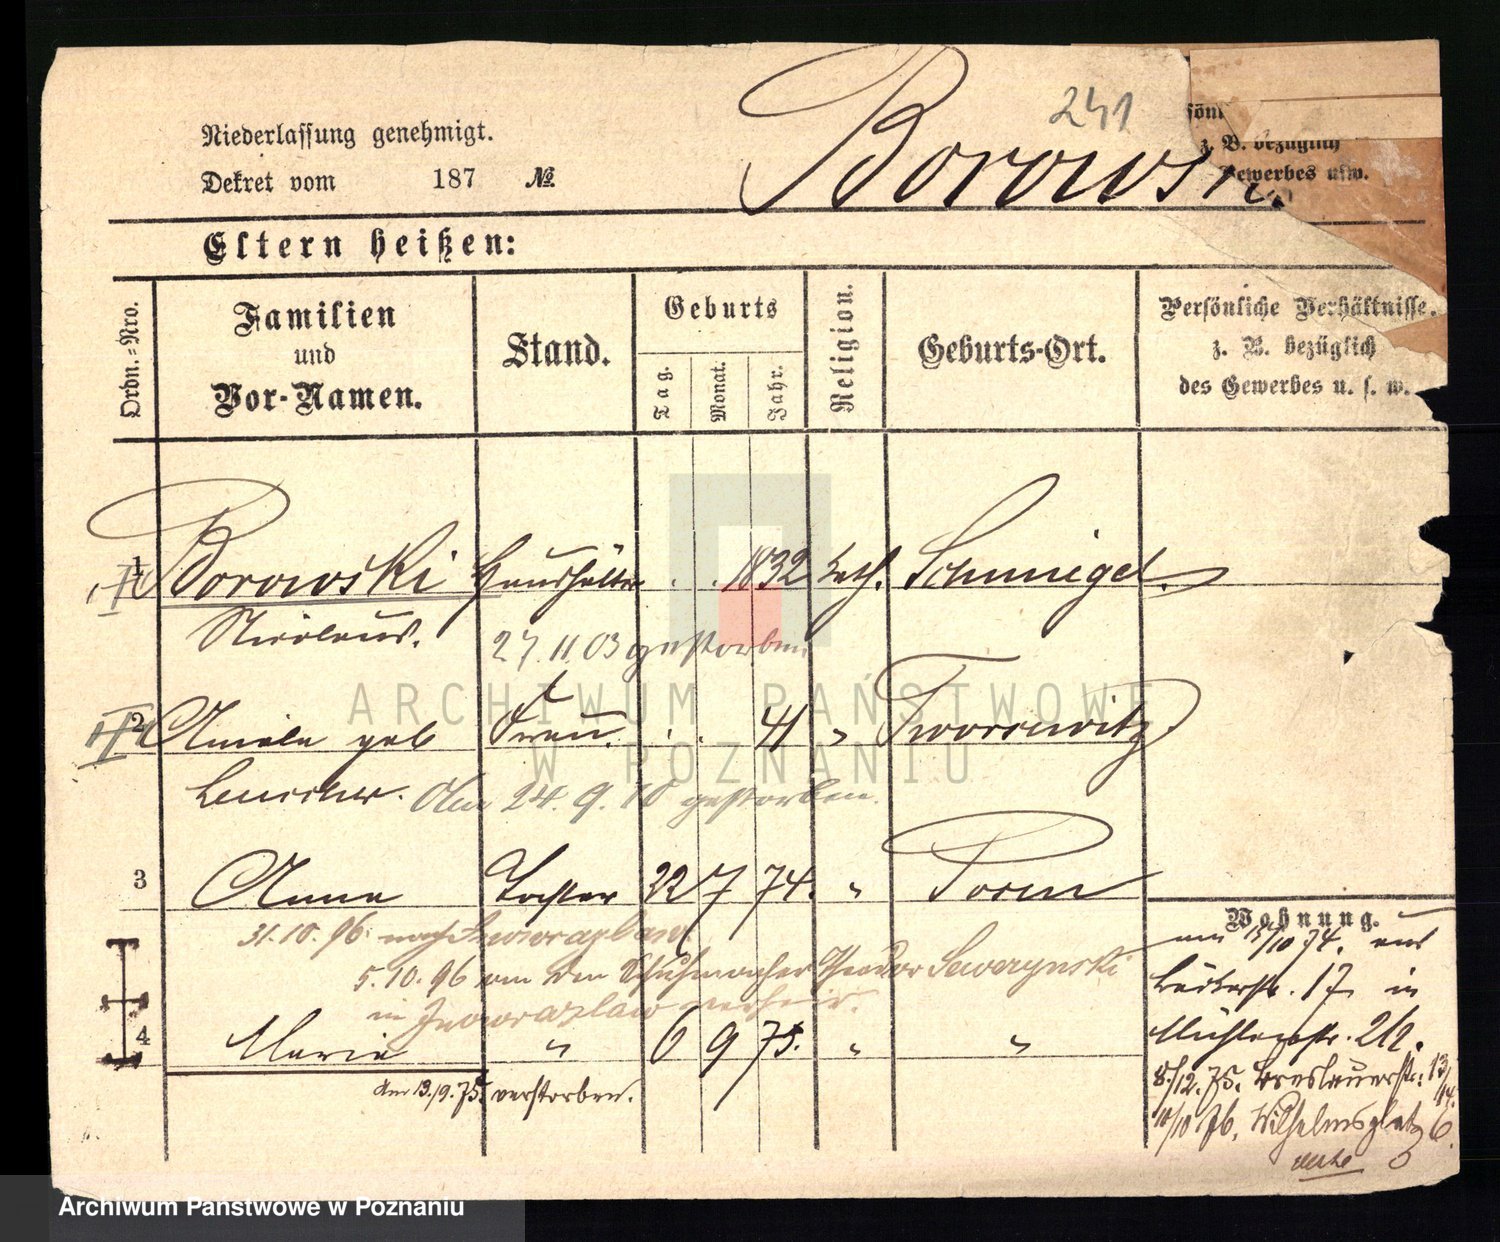 241
Niederlassung genehmigt.
Dekret vom 187 No
Borowski.
z. B. bezüglich
Gewerbes usw.
Eltern heißen:
Ordn.-Nro.
Familien
und
Vor-Namen.
Stand.
Geburts
Tag.
Monat.
Jahr.
Religion.
Geburts-Ort.
Persönliche Verhältnisse.
z. B. bezüglich
des Gewerbes u. s. w.
1 Borowski Haushälter . . 1832 kath. Schmiegel.
Nicolaus. 27.11.03 gestorben
2 geb Frau. . . 41 "
Am 24.9.10 gestorben.
3 Anna Tochter 22 7 74. " Posen
31.10.96 nach Inowrazlaw.
5.10.96 an den Schuhmacher Theodor Sewerynski
in Inowrazlaw verheir.
4 Marie " 6 9 75. " "
Am 13./9.75. verstorben.
Wohnung.
17 in
Mühlenstr.
8./12.75. Breslauerstr. 13/14.
10/10 76. Wilhelmsplatz 6.
ARCHIWUM PAŃSTWOWE
W POZNANIU
Archiwum Państwowe w Poznaniu